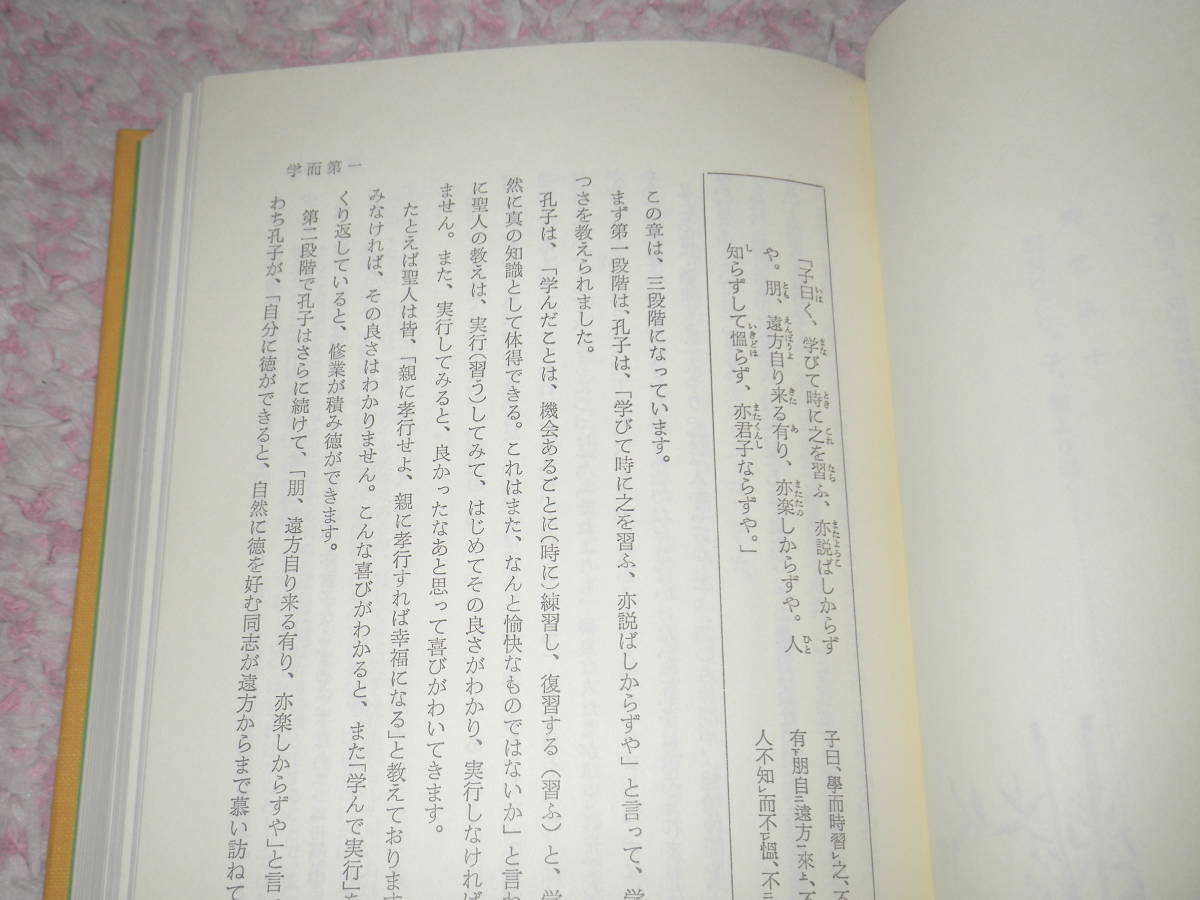 学而第一
「子曰く、学びて時に之を習ふ、亦説ばしからず
や。朋、遠方自り来る有り、亦楽しからずや。人
知らずして慍らず、亦君子ならずや。」
子曰、學而時習レ之、不
有下朋自二遠方一來上、不
人不知レ而不レ慍、不二
この章は、三段階になっています。
まず第一段階は、孔子は、「学びて時に之を習ふ、亦説ばしからずや」と言って、学
つさを教えられました。
孔子は、「学んだことは、機会あるごとに(時に)練習し、復習する(習ふ)と、学
然に真の知識として体得できる。これはまた、なんと愉快なものではないか」と言わ
に聖人の教えは、実行(習う)してみて、はじめてその良さがわかり、実行しなければ
ません。また、実行してみると、良かったなあと思って喜びがわいてきます。
たとえば聖人は皆、「親に孝行せよ、親に孝行すれば幸福になる」と教えております
みなければ、その良さはわかりません。こんな喜びがわかると、また「学んで実行」を
くり返していると、修業が積み徳ができます。
第二段階で孔子はさらに続けて、「朋、遠方自り来る有り、亦楽しからずや」と言
わち孔子が、「自分に徳ができると、自然に徳を好む同志が遠方からまで慕い訪ねて